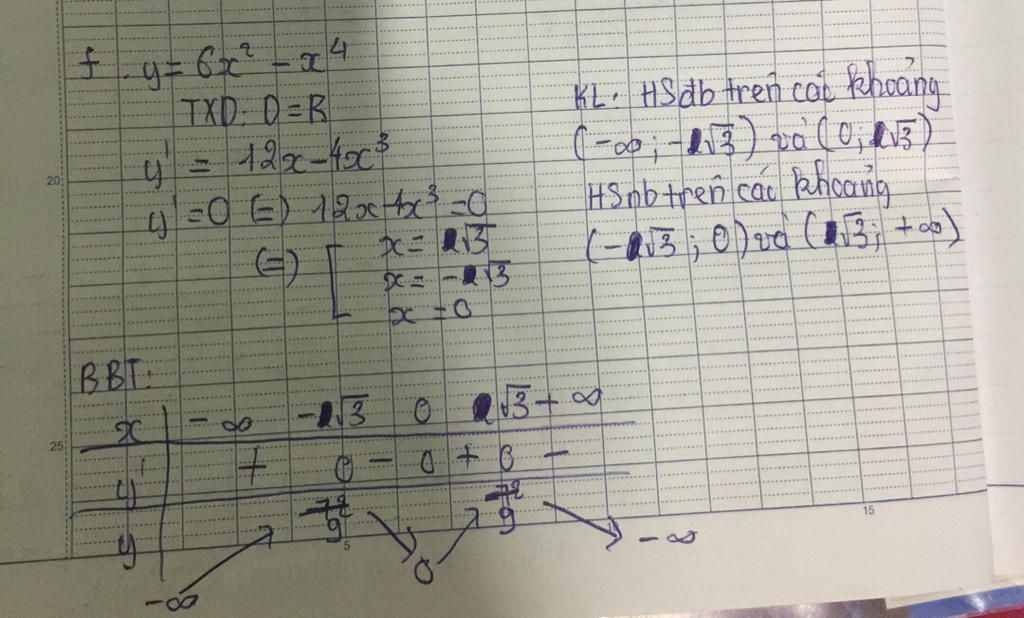 f. y = 6x² - x⁴
TXD: D = R
y' = 12x - 4x³
y' = 0 (=) 12x - 4x³ = 0
(=) [ x = √3
x = -√3
x = 0
KL: HSđb trên các khoảng
(-∞; -√3) và (0; √3)
HSnb trên các khoảng
(-√3; 0) và (√3; +∞)
BBT:
x -∞ -√3 0 √3 +∞
y' + 0 - 0 + 0 -
y -∞ 9 0 9 -∞
20
25
5
15